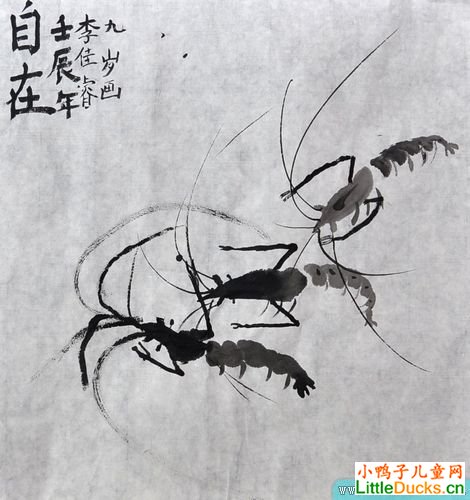 自在
壬辰年
李佳睿
九岁画
小鸭子儿童网
www
LittleDucks.cn